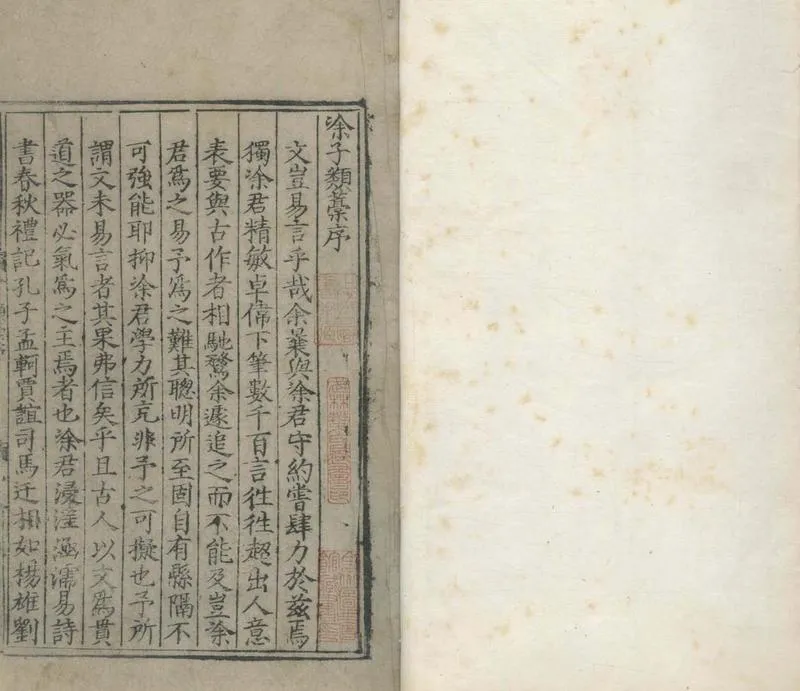 涂子類藁序
文豈易言乎哉余蚤與涂君守約嘗肆力於兹焉
獨涂君精敏卓偉下筆數千百言徃徃超出人意
表要與古作者相馳騖余遽追之而不能及豈涂
君爲之易予爲之難其聰明所至固自有縣隔不
可強能耶抑涂君學力所充非予之可擬也予所
謂文未易言者其果弗信矣乎且古人以文爲貫
道之器必氣爲之主焉者也涂君浸淫涵濡易詩
書春秋禮記孔子孟軻賈誼司馬迁相如楊雄劉